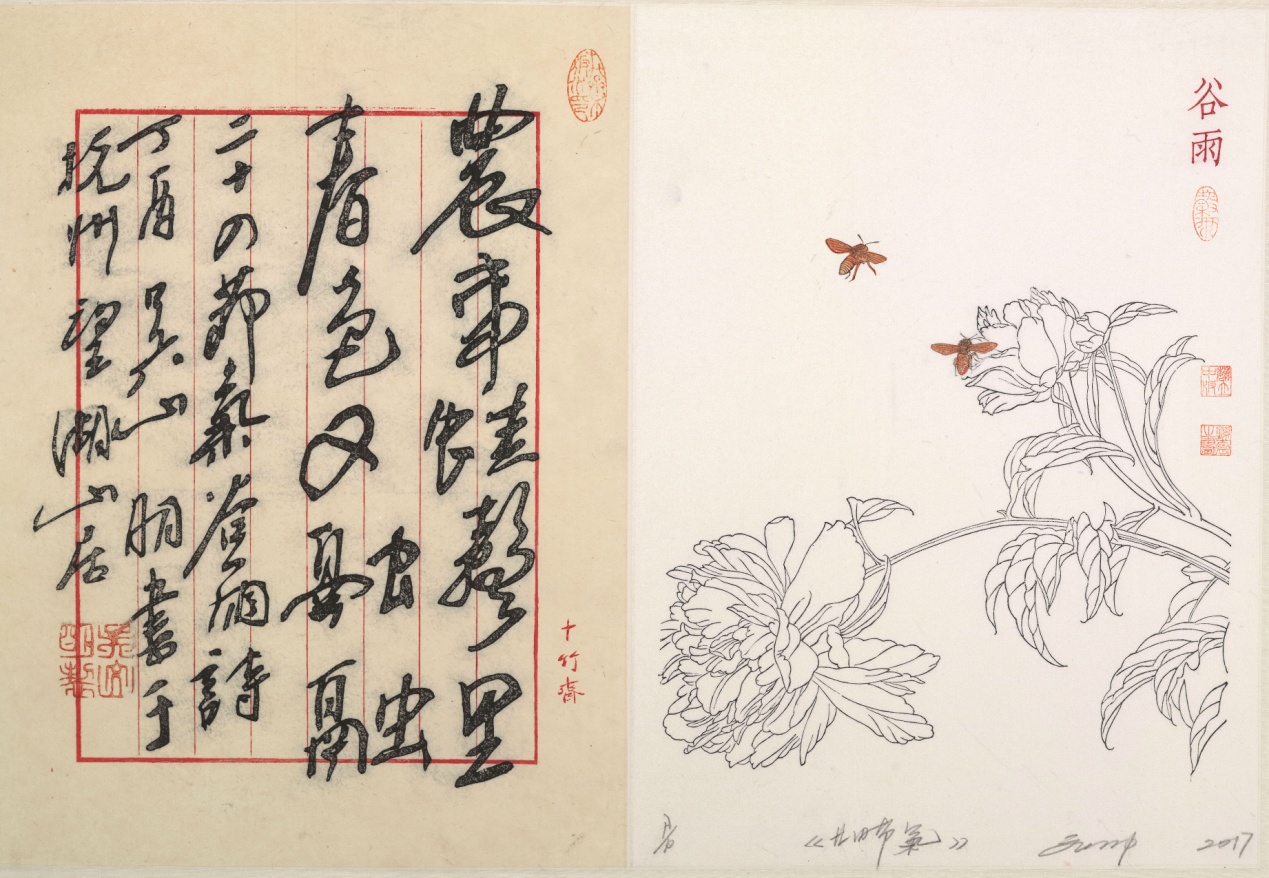 谷雨
農事蛙聲里
春色又融融
二十四節氣谷雨詩
丁酉吳山明書于
杭州望湖山居
十竹齋
《廿四節氣》
2017